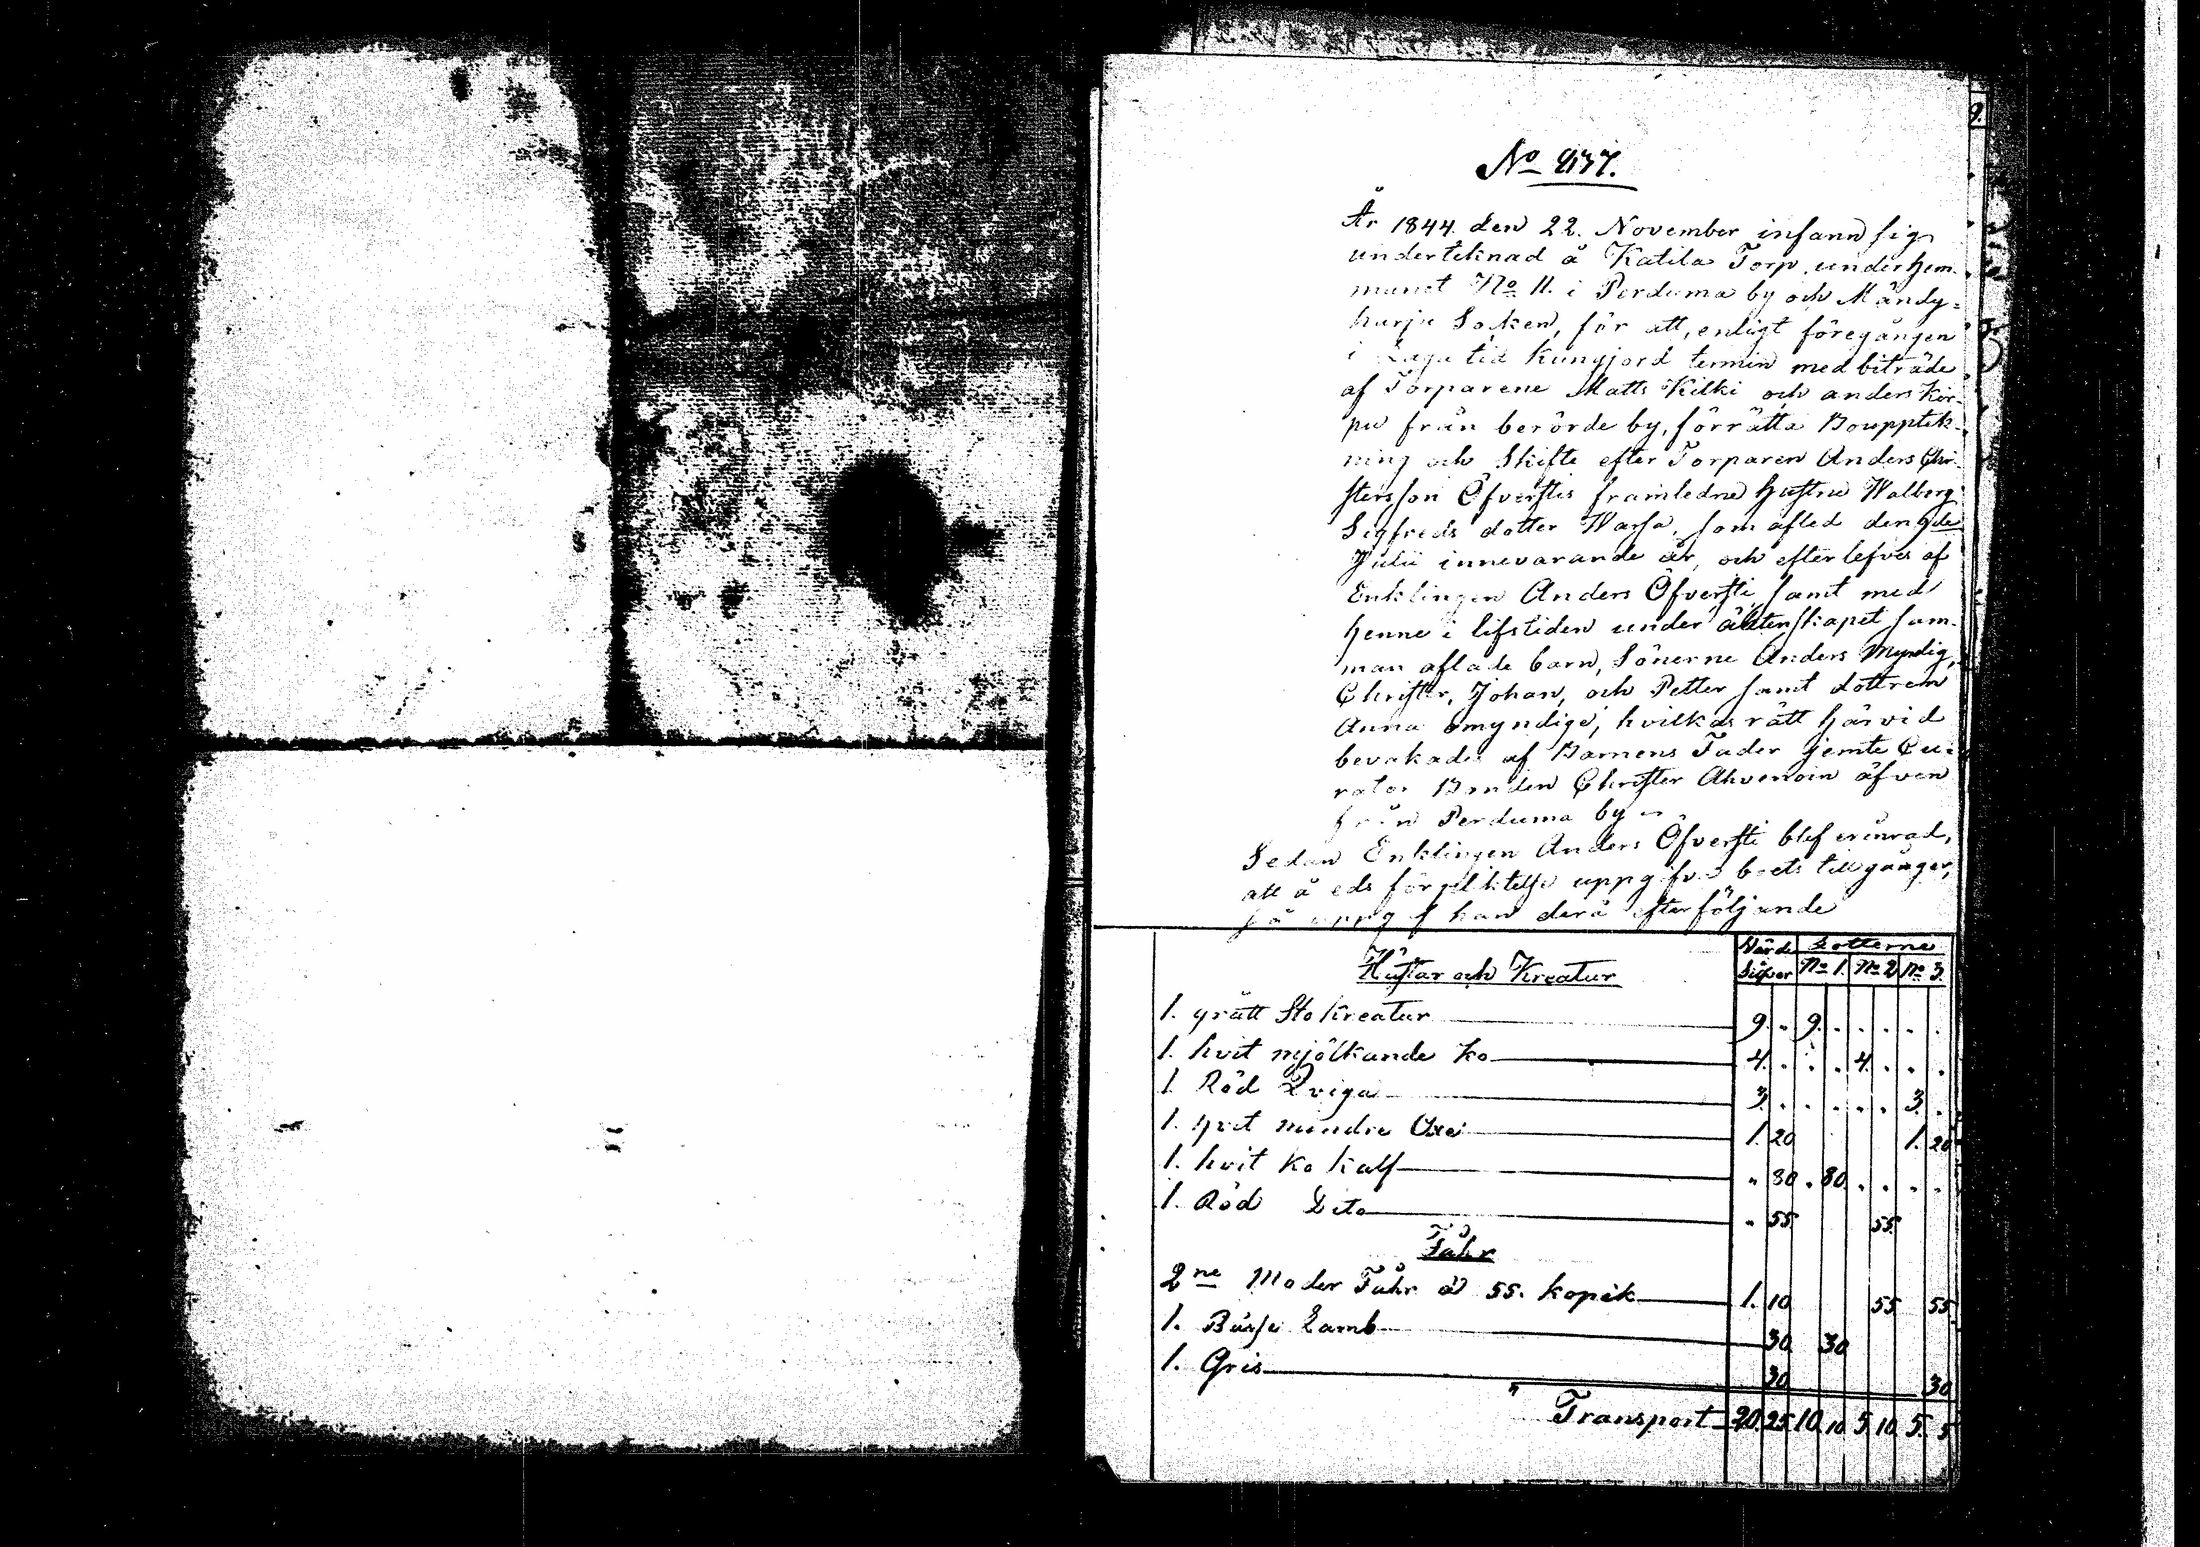 9.
No 937.
År 1844. den 22. November infann sig
underteknad å Katila Torp, under hem-
manet No 11. i Perduma by och Mändy-
harju Socken, för att, enligt föregången
i Laga tid kungjord termin med biträde
af Torparene Matts Kilki och anders Kor-
pu från berörde by, förrätta Bouppték-
ning och Skifte efter Torparen Anders Chri-
sters son Öfverstis framledne hustru Walborg
Sigfreds dotter Warsa, som afled den 9de
Julii innevarande år, och efterlefves af
Enklingen Anders Öfversti samt med
henne i lifstiden under äktenskapet sam-
man aflade barn, Sönerne Anders Myndig,
Christer, Johan, och Petter samt dottren
Anna omyndige, hvilkas rätt härvid
bevakades af Barnens Fader jemte Cu-
rator Bonden Christer Ahvenain äfven
från Perduma by
Sedan Enklingen Anders Öfversti blef erinrad,
att å eds förpliktelse uppgifva boets tillgångar,
så uppgaf han derå efterföljande
Värde Lotterne
Hästar och Kreatur Silfver No 1. No 2 No 3.
1. grått Sto kreatur 9. " 9. . . . . .
1. hvit mjölkande ko 4. . . . 4. . . .
1. Röd Qviga 3. . . . . . 3. .
1. hvit mindre Oxe 1. 20 1. 20
1. hvit ko kalf " 80 . 80 . . . .
1. Röd Dito " 55 55
Fåhr
2ne Moder Fåhr à 55. kopek 1. 10 55 55
1. Bässe Lamb 30 30
1. Gris 30 30
Transport 20. 25 10. 10 5. 10 5. 5